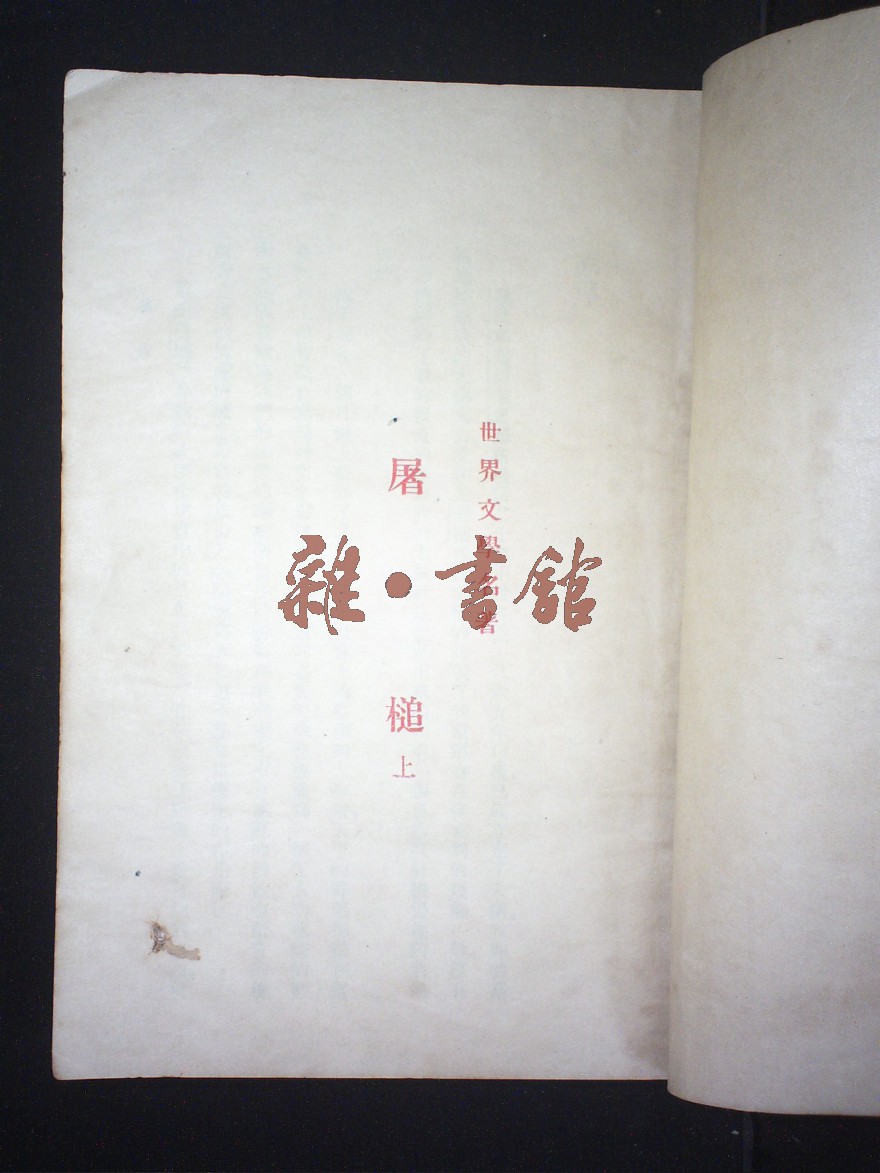 世界文學名著
屠槌
上
雜·書館